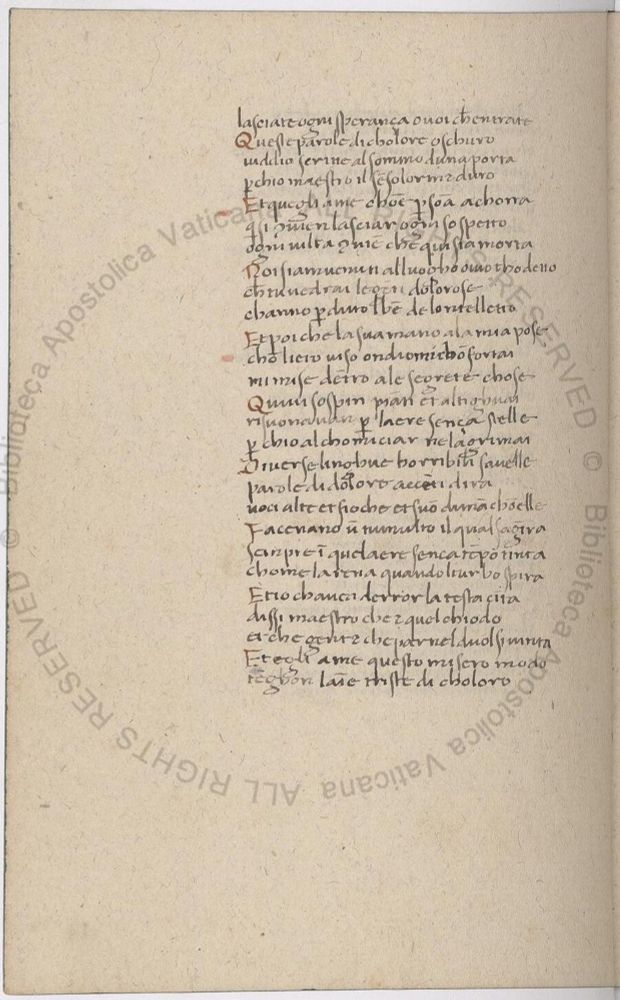 lasciate ogni sperança o voi ch̄entrate
Queste parole di cholore oschuro
vid dio scritte al sommo duna porta
p̱chio maestro il sēso lor mr duro
Et quegli a me chōe p̱soā achorta
q̄ si ꝯviē lasciar ogni sospetto
ogni vilta ꝯviē che qui sia morta
Noi siam venuti alluogho ovio tho detto
ch̄ tu vedrai le gēti dolorose
channo p̱duto lbē de lontelletto
Et poi che la sua mano a la mia pose
chō lieto viso ondio mi chōfortai
mi mise dētro a le segrete chose
Quivi sospiri piāti et alti ghuai
risuonavan p̱ laere sença stelle
p̱ chio al chominciar ne lagrimai
Diverse linghue horribili favelle
parole di dolore accēti dira
voci alte et fioche et suō dimā chō elle
Facevano ū tumulto il qual sagira
sempre ī quelaere sença tēpo tinta
chome larena quandol turbo spira
Et io chavea derror la testa cīta
dissi maestro che ɀ quel chiodo
et che gentɀ che par nel duol si vinta
Et egli a me questo misero modo
tēghon lāīe triste di choloro
Biblioteca Apostolica Vaticana ALL RIGHTS RESERVED ©
Biblioteca Apostolica Vaticana ALL RIGHTS RESERVED ©